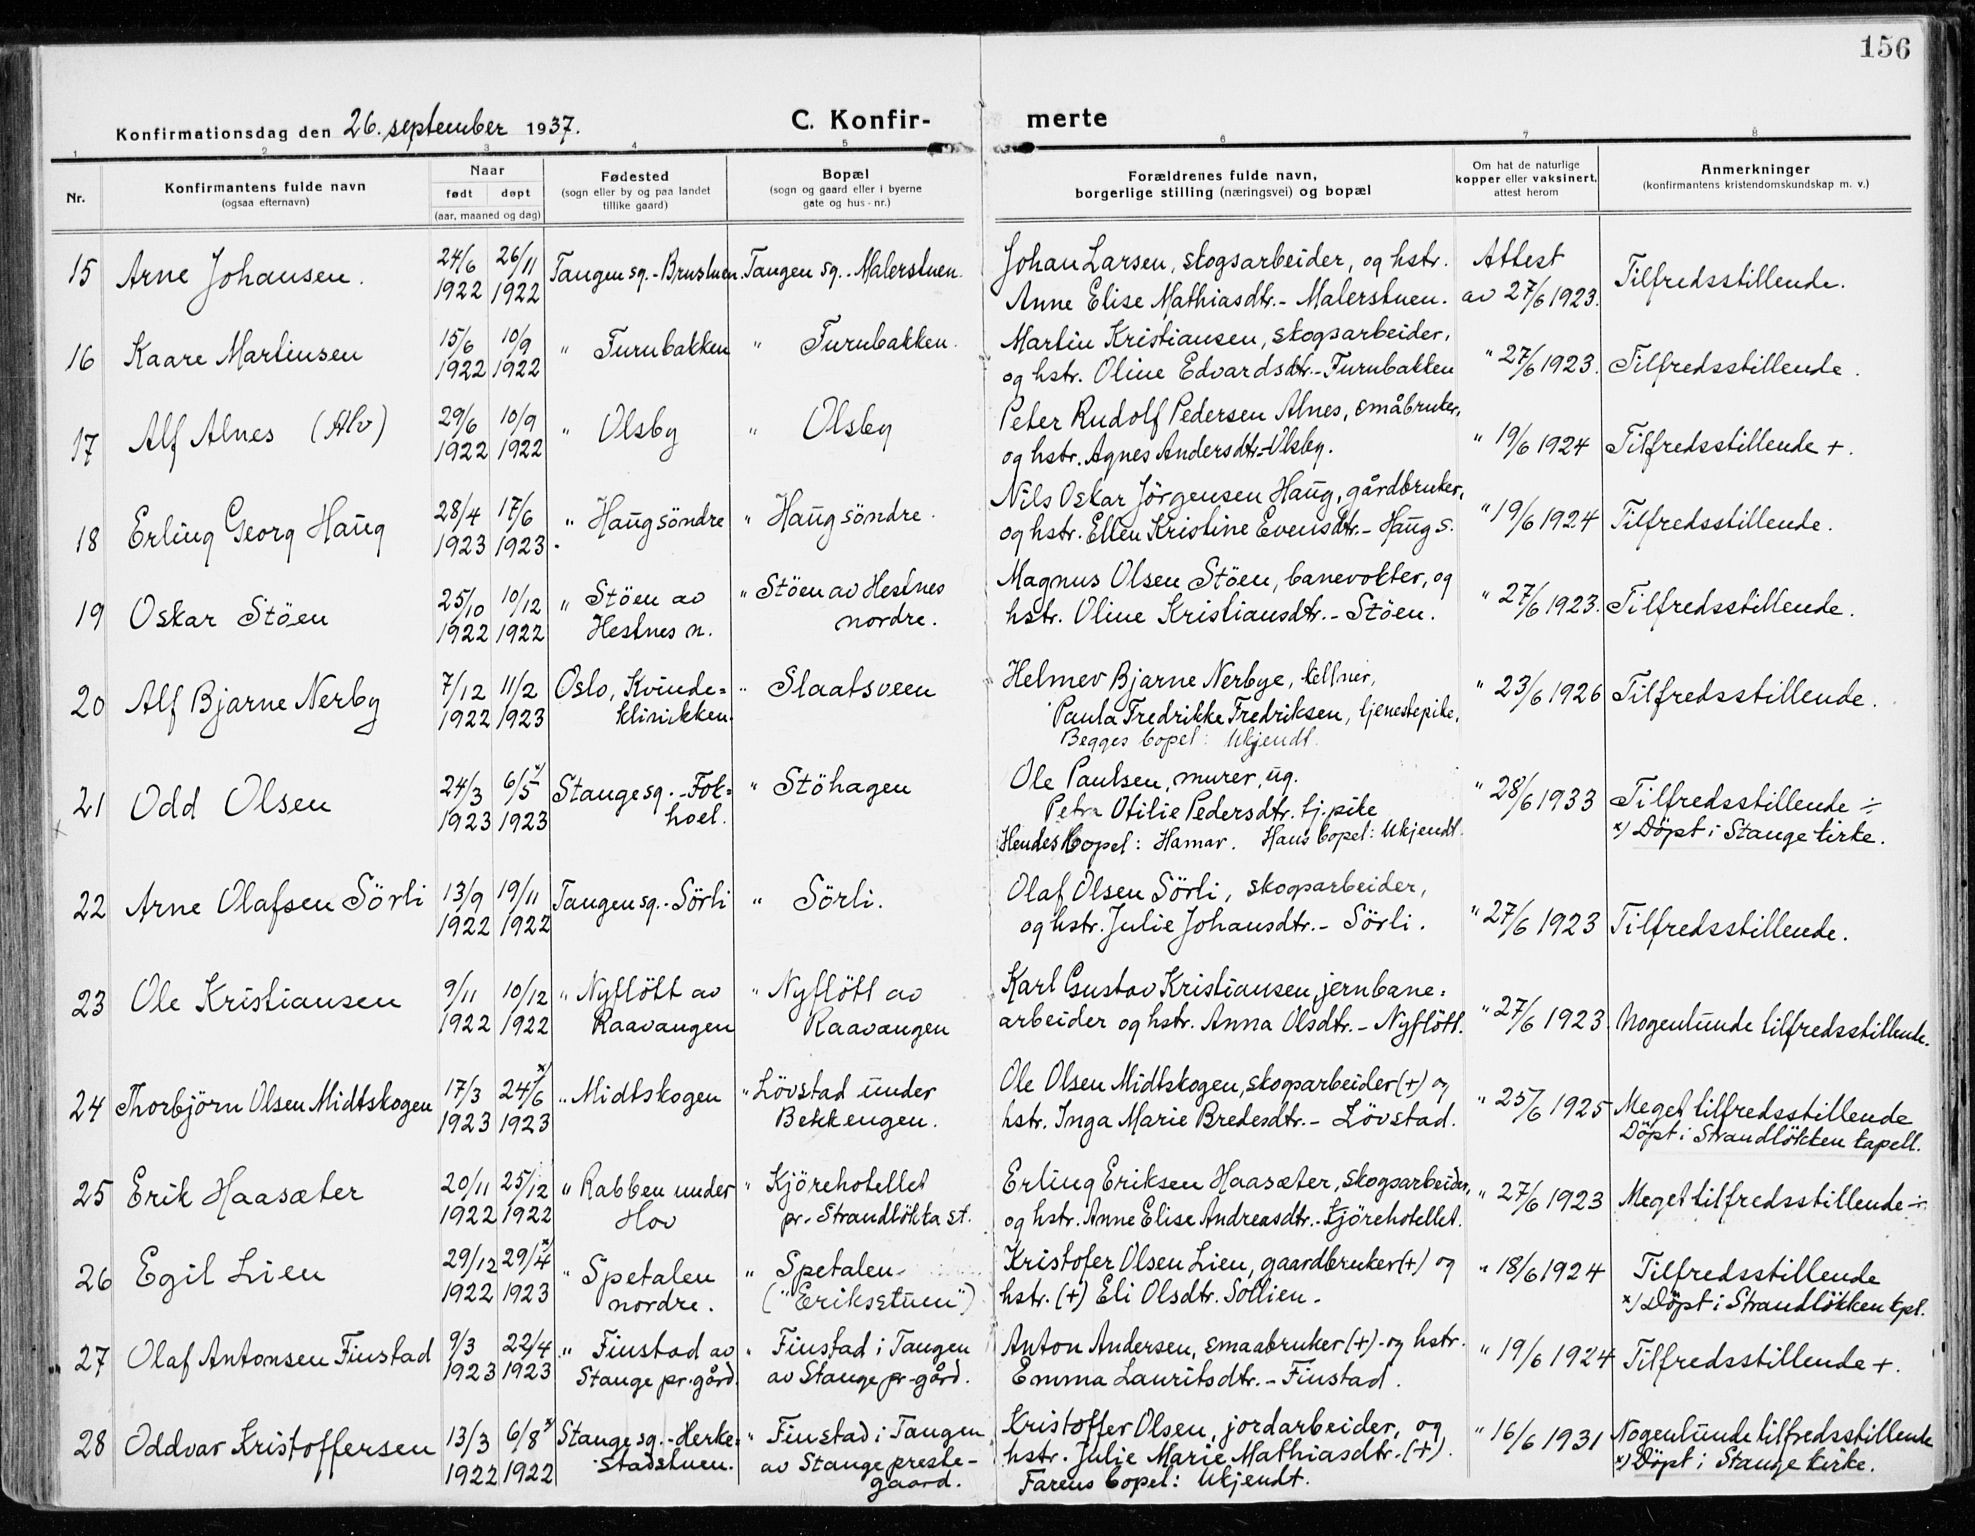 156
Konfirmationsdag den 26. september 1937. C. Konfir- merte
1 2 3 4 5 6 7 8
Nr. Konfirmantens fulde navn (ogsaa efternavn) Naar født døpt (aar, maaned og dag) Fødested (sogn eller by og paa landet tillike gaard) Bopæl (sogn og gaard eller i byerne gate og hus-nr.) Forældrenes fulde navn, borgerlige stilling (næringsvei) og bopæl Om hat de naturlige kopper eller vaksinert, attest herom Anmerkninger (konfirmantens kristendomskundskap m. v.)
15 Arne Johansen. 24/6 26/11 Tangen sg. - Brustuen. Tangen sg. - Malerstuen. Johan Larsen, skogsarbeider, og hstr. Attest Tilfredsstillende.
1922 1922 Anne Elise Mathiasdtr. - Malerstuen. av 27/6 1923.
16 Kaare Martinsen 15/6 10/9 " Furubakken " Furubakken. Martin Kristiansen, skogsarbeider, " 27/6 1923. Tilfredsstillende.
1922 1922 og hstr. Oline Edvardsdtr. - Furubakken
17 Alf Alnes (Alv) 29/6 10/9 " Olsby " Olsby Peter Rudolf Pedersen Alnes, småbruker, " 19/6 1924 Tilfredsstillende +.
1922 1922 og hstr. Agnes Andersdtr. - Olsby.
18 Erling Georg Haug 28/4 17/6 " Haug söndre " Haug söndre. Nils Oskar Jörgensen Haug, gårdbruker, " 19/6 1924 Tilfredsstillende.
1923 1923. og hstr. Ellen Kristine Evensdtr. - Haug s.
19 Oskar Stöen 25/10 10/12 " Stöen av " Stöen av Hestnes Magnus Olsen Stöen, banevokter, og " 27/6 1923. Tilfredsstillende.
1922 1922 Hestnes n. nordre. hstr. Oline Kristiansdtr. - Stöen.
20 Alf Bjarne Nerby 7/12 11/2 Oslo, Kvinde= " Slaatsveen Helmer Bjarne Nerbye, kellner, " 23/6 1926 Tilfredsstillende.
1922 1923 klinikken. Paula Fredrikke Fredriksen, tjenestepike.
Begges bopel: Ukjendt.
21 Odd Olsen 24/3 6/5 x) Stange sg. - Fok= " Stöhagen Ole Paulsen, murer, ug. " 28/6 1933 Tilfredsstillende ÷
1923 1923 hoel. Petra Otilie Pedersdtr. tj. pike x) Döpt i Stange kirke.
Hendes bopel: Hamar. Hans bopel: Ukjendt.
22 Arne Olafsen Sörli 13/9 19/11 Tangen sg. - Sörli " Sörli. Olaf Olsen Sörli, skogsarbeider, " 27/6 1923 Tilfredsstillende.
1922 1922 og hstr. Julie Johansdtr. - Sörli.
23 Ole Kristiansen 9/11 10/12 " Nyflött av " Nyflött av Karl Gustav Kristiansen, jernbane= " 27/6 1923. Nogenlunde tilfredsstillende.
1922 1922 Raavangen Raavangen arbeider og hstr. Anna Olsdtr. - Nyflött.
24 Thorbjörn Olsen Midtskogen 17/3 24/6 x) " Midtskogen " Lövstad under Ole Olsen Midtskogen, skogsarbeider (+) og " 25/6 1925 Meget tilfredsstillende
1923 1923 Bekkengen. hstr. Inga Marie Bredesdtr. - Lövstad. Döpt i Strandlökken kapell.
25 Erik Haasæter 20/11 25/12 " Rabben under " Kjörehotellet Erling Eriksen Haasæter, skogsarbeider, " 27/6 1923 Meget tilfredsstillende ÷.
1922 1922 Hov pr. Strandlökka st. og hstr. Anne Elise Andreasdtr. - Kjörehotellet.
26 Egil Lien 29/12 29/4 x) " Spetalen " Spetalen Kristofer Olsen Lien, gaardbruker (+) og " 18/6 1924 Tilfredsstillende
1922 1923 nordre. ("Erikstuen") hstr. (+) Eli Olsdtr. Sollien. x) Döpt i Strandlökken kpl.
27 Olaf Antonsen Finstad 9/3 22/4 " Finstad av " Finstad i Tangen Anton Andersen, smaabruker (+) - og hstr. " 19/6 1924 Tilfredsstillende +.
1923 1923 Stange pr. gård. av Stange pr-gård. Emma Lauritsdtr. - Finstad.
28 Oddvar Kristoffersen 13/3 6/8 x) Stange sg. - Herke= " Finstad i Tangen Kristoffer Olsen, jordarbeider, og " 16/6 1931 Nogenlunde tilfredsstillende
1922 1922 stadstuen. av Stange preste- hstr. Julie Marie Mathiasdtr. (+). x) Döpt i Stange kirke.
gaard. Farens bopel: Ukjendt.